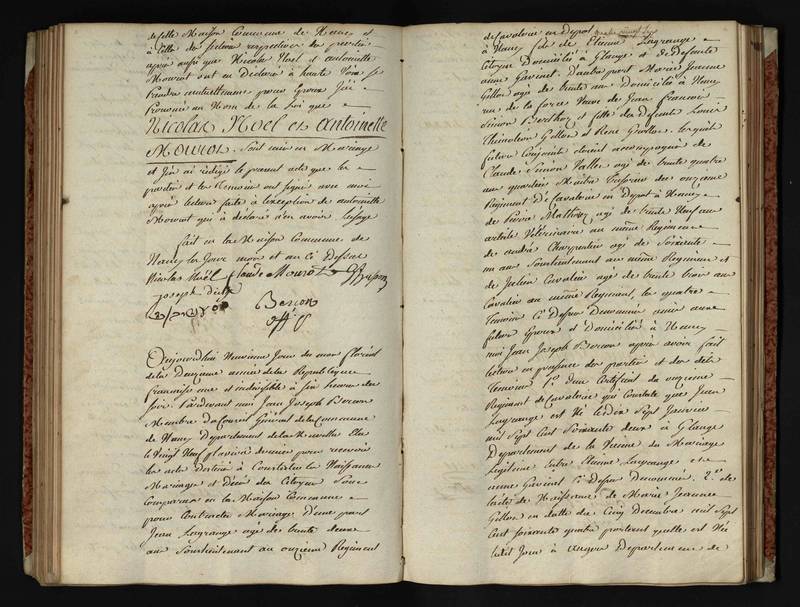 de fait en la Maison Commune de
après aussi que Nicolas Noel et antoinette
Mourot ont eu Déclaré à haute Voix se
prendre mutuellement pour Epoux J'ai
prononcé au Nom de la Loi que
Nicolas Noel et antoinette
Mourot. Sont unis en Mariage
et J'ai rédigé le present acte que les
parties et les témoins ont signé avec moi
après lecture faite à l'exception de antoinette
Mourot qui a déclaré n'en avoir l'usage
fait en la Maison Commune de
Nancy les Jour mois et an Ci Dessus
Nicolas Noël Claude Mourot
joseph
Berson
off. p.
Aujourd'hui Neuvieme Jour du mois floréal
de la Deuxieme année de la Republique
francaise une et indivisible à six heures du
soir. Pardevant moi Jean Joseph Berson
Membre du Conseil Général de la Commune
de Nancy Departement de la Meurthe Elu
le Vingt Neuf pour recevoir
les actes Destinés à Constater les Naissances
Mariages et Décès des Citoyens Sont
Comparus en la Maison Commune
pour Contracter Mariage D'une part
Jean Lagrange agé de trente deux
ans Souslieutenant au onzieme Regiment
de Cavalerie en Depot
à Nancy fils de Etienne Lagrange
Citoyen Domiciliés à Glange et de Defunte
anne Gavinet. D'autre part Marie Jeanne
Gillon agé de trente ans Domiciliée à Nancy
rue de la force Veuve de Jean francois
Simon et fille des Defunts Louis
Timoleon Gillon et René Lesquels
futurs Conjoints étoient accompagnés de
Claude Simon Vallet agé de trente quatre
ans quartier Maitre Tresorier du onzieme
Regiment de Cavalerie en Depot à Nancy
de Pierre Mathieu agé de trente Neuf ans
artiste Vétérinaire au même Regiment
de andré Charpentier agé de Soixante
un ans Souslieutenant au même Regiment et
de Julien Cavalier agé de trente trois ans
Cavalier au même Regiment, les quatre
Temoins Ci Dessus Denommés amis aux
futurs Epoux et Domiciliés à Nancy
moi Jean Joseph Berson après avoir fait
lecture en presence des parties et des dits
Temoins 1.° D'un Certificat du onzieme
Regiment de Cavalerie qui Constate que Jean
Lagrange est Né le dix Sept Janvier
mil Sept Cent Soixante deux à Glange
Departement de la Vienne du Mariage
Légitime entre Etienne Lagrange et
anne Gavinet Ci Dessus Denommés. 2.° de
l'acte de Naissance de Marie Jeanne
Gillon en datte du Cinq Decembre mil Sept
Cent soixante quatre portant qu'elle est Née
ledit Jour à angers Departement de